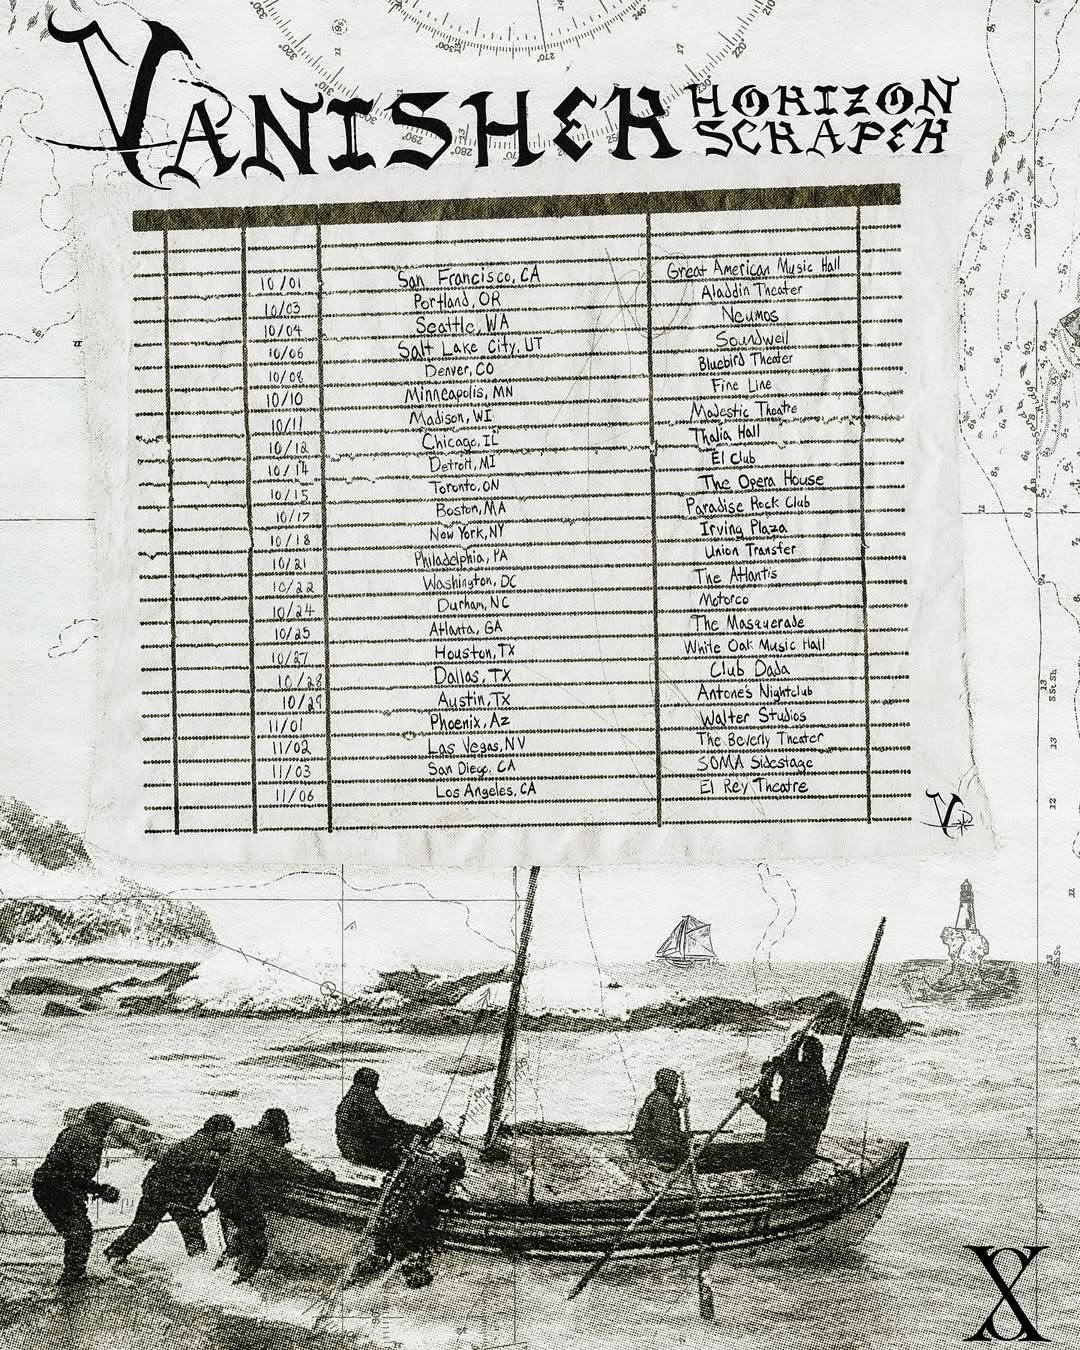 VANISHER HORIZON SCRAPER
10/01 San Francisco, CA Great American Music Hall
10/03 Portland, OR Aladdin Theater
10/04 Seattle, WA Neumos
10/06 Salt Lake City, UT Soundwell
10/08 Denver, CO Bluebird Theater
10/10 Minneapolis, MN Fine Line
10/11 Madison, WI Majestic Theatre
10/12 Chicago, IL Thalia Hall
10/14 Detroit, MI El Club
10/15 Toronto, ON The Opera House
10/17 Boston, MA Paradise Rock Club
10/18 New York, NY Irving Plaza
10/21 Philadelphia, PA Union Transfer
10/22 Washington, DC The Atlantis
10/24 Durham, NC Motorco
10/25 Atlanta, GA The Masquerade
10/27 Houston, TX White Oak Music Hall
10/28 Dallas, TX Club Dada
10/29 Austin, TX Antone's Nightclub
11/01 Phoenix, Az Walter Studios
11/02 Las Vegas, NV The Beverly Theater
11/03 San Diego, CA SOMA Sidestage
11/06 Los Angeles, CA El Rey Theatre